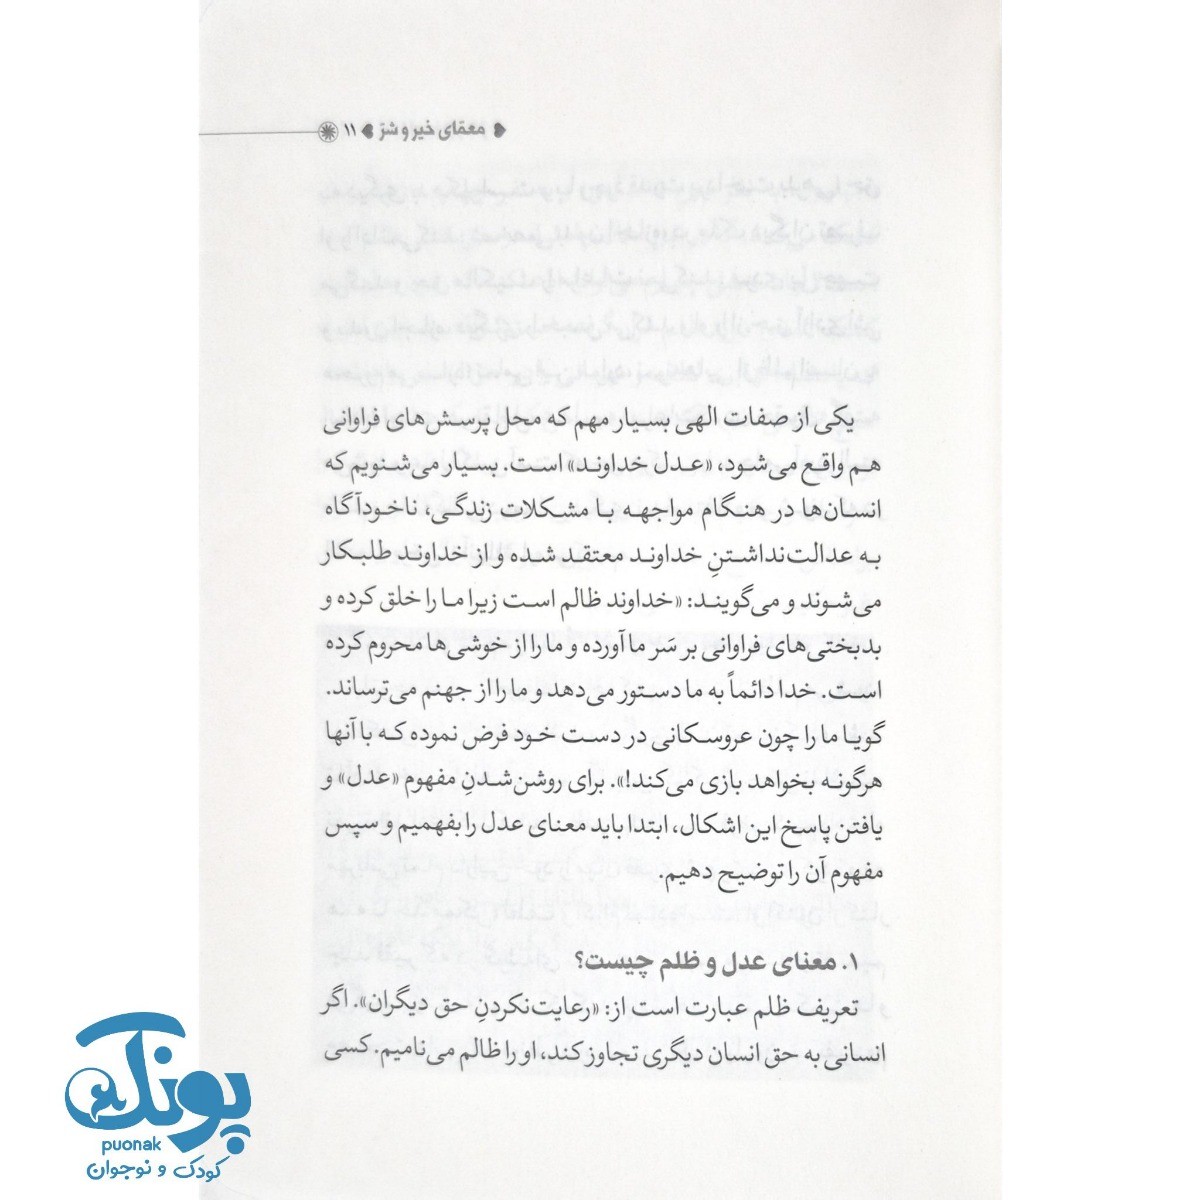 معمّای خیر و شرّ ۱۱
یکی از صفات الهی بسیار مهم که محل پرسش‌های فراوانی
هم واقع می‌شود، «عدل خداوند» است. بسیار می‌شنویم که
انسان‌ها در هنگام مواجهه با مشکلات زندگی، ناخودآگاه
به عدالت‌نداشتنِ خداوند معتقد شده و از خداوند طلبکار
می‌شوند و می‌گویند: «خداوند ظالم است زیرا ما را خلق کرده و
بدبختی‌های فراوانی بر سَر ما آورده و ما را از خوشی‌ها محروم کرده
است. خدا دائماً به ما دستور می‌دهد و ما را از جهنم می‌ترساند.
گویا ما را چون عروسکانی در دست خود فرض نموده که با آنها
هرگونه بخواهد بازی می‌کند!». برای روشن‌شدنِ مفهوم «عدل» و
یافتن پاسخ این اشکال، ابتدا باید معنای عدل را بفهمیم و سپس
مفهوم آن را توضیح دهیم.
۱. معنای عدل و ظلم چیست؟
تعریف ظلم عبارت است از: «رعایت‌نکردنِ حق دیگران». اگر
انسانی به حق انسان دیگری تجاوز کند، او را ظالم می‌نامیم. کسی
پونک
puonak
کودک و نوجوان